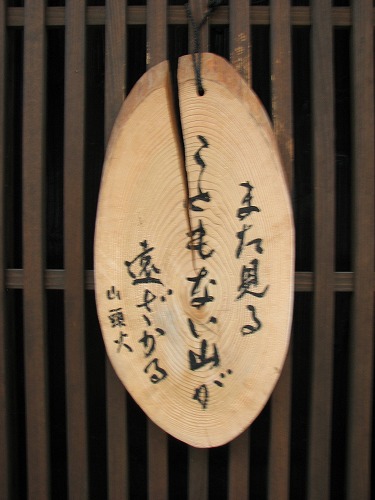 また見る
こともない山が
遠ざかる
山頭火